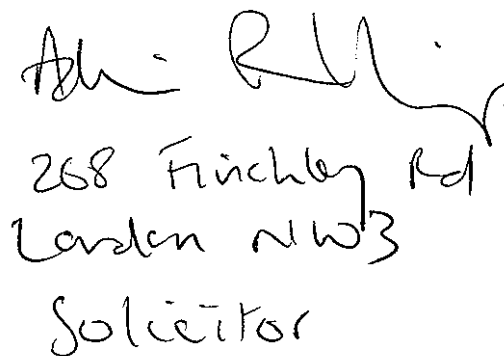 268 Finchley Rd
London NW3
Solicitor